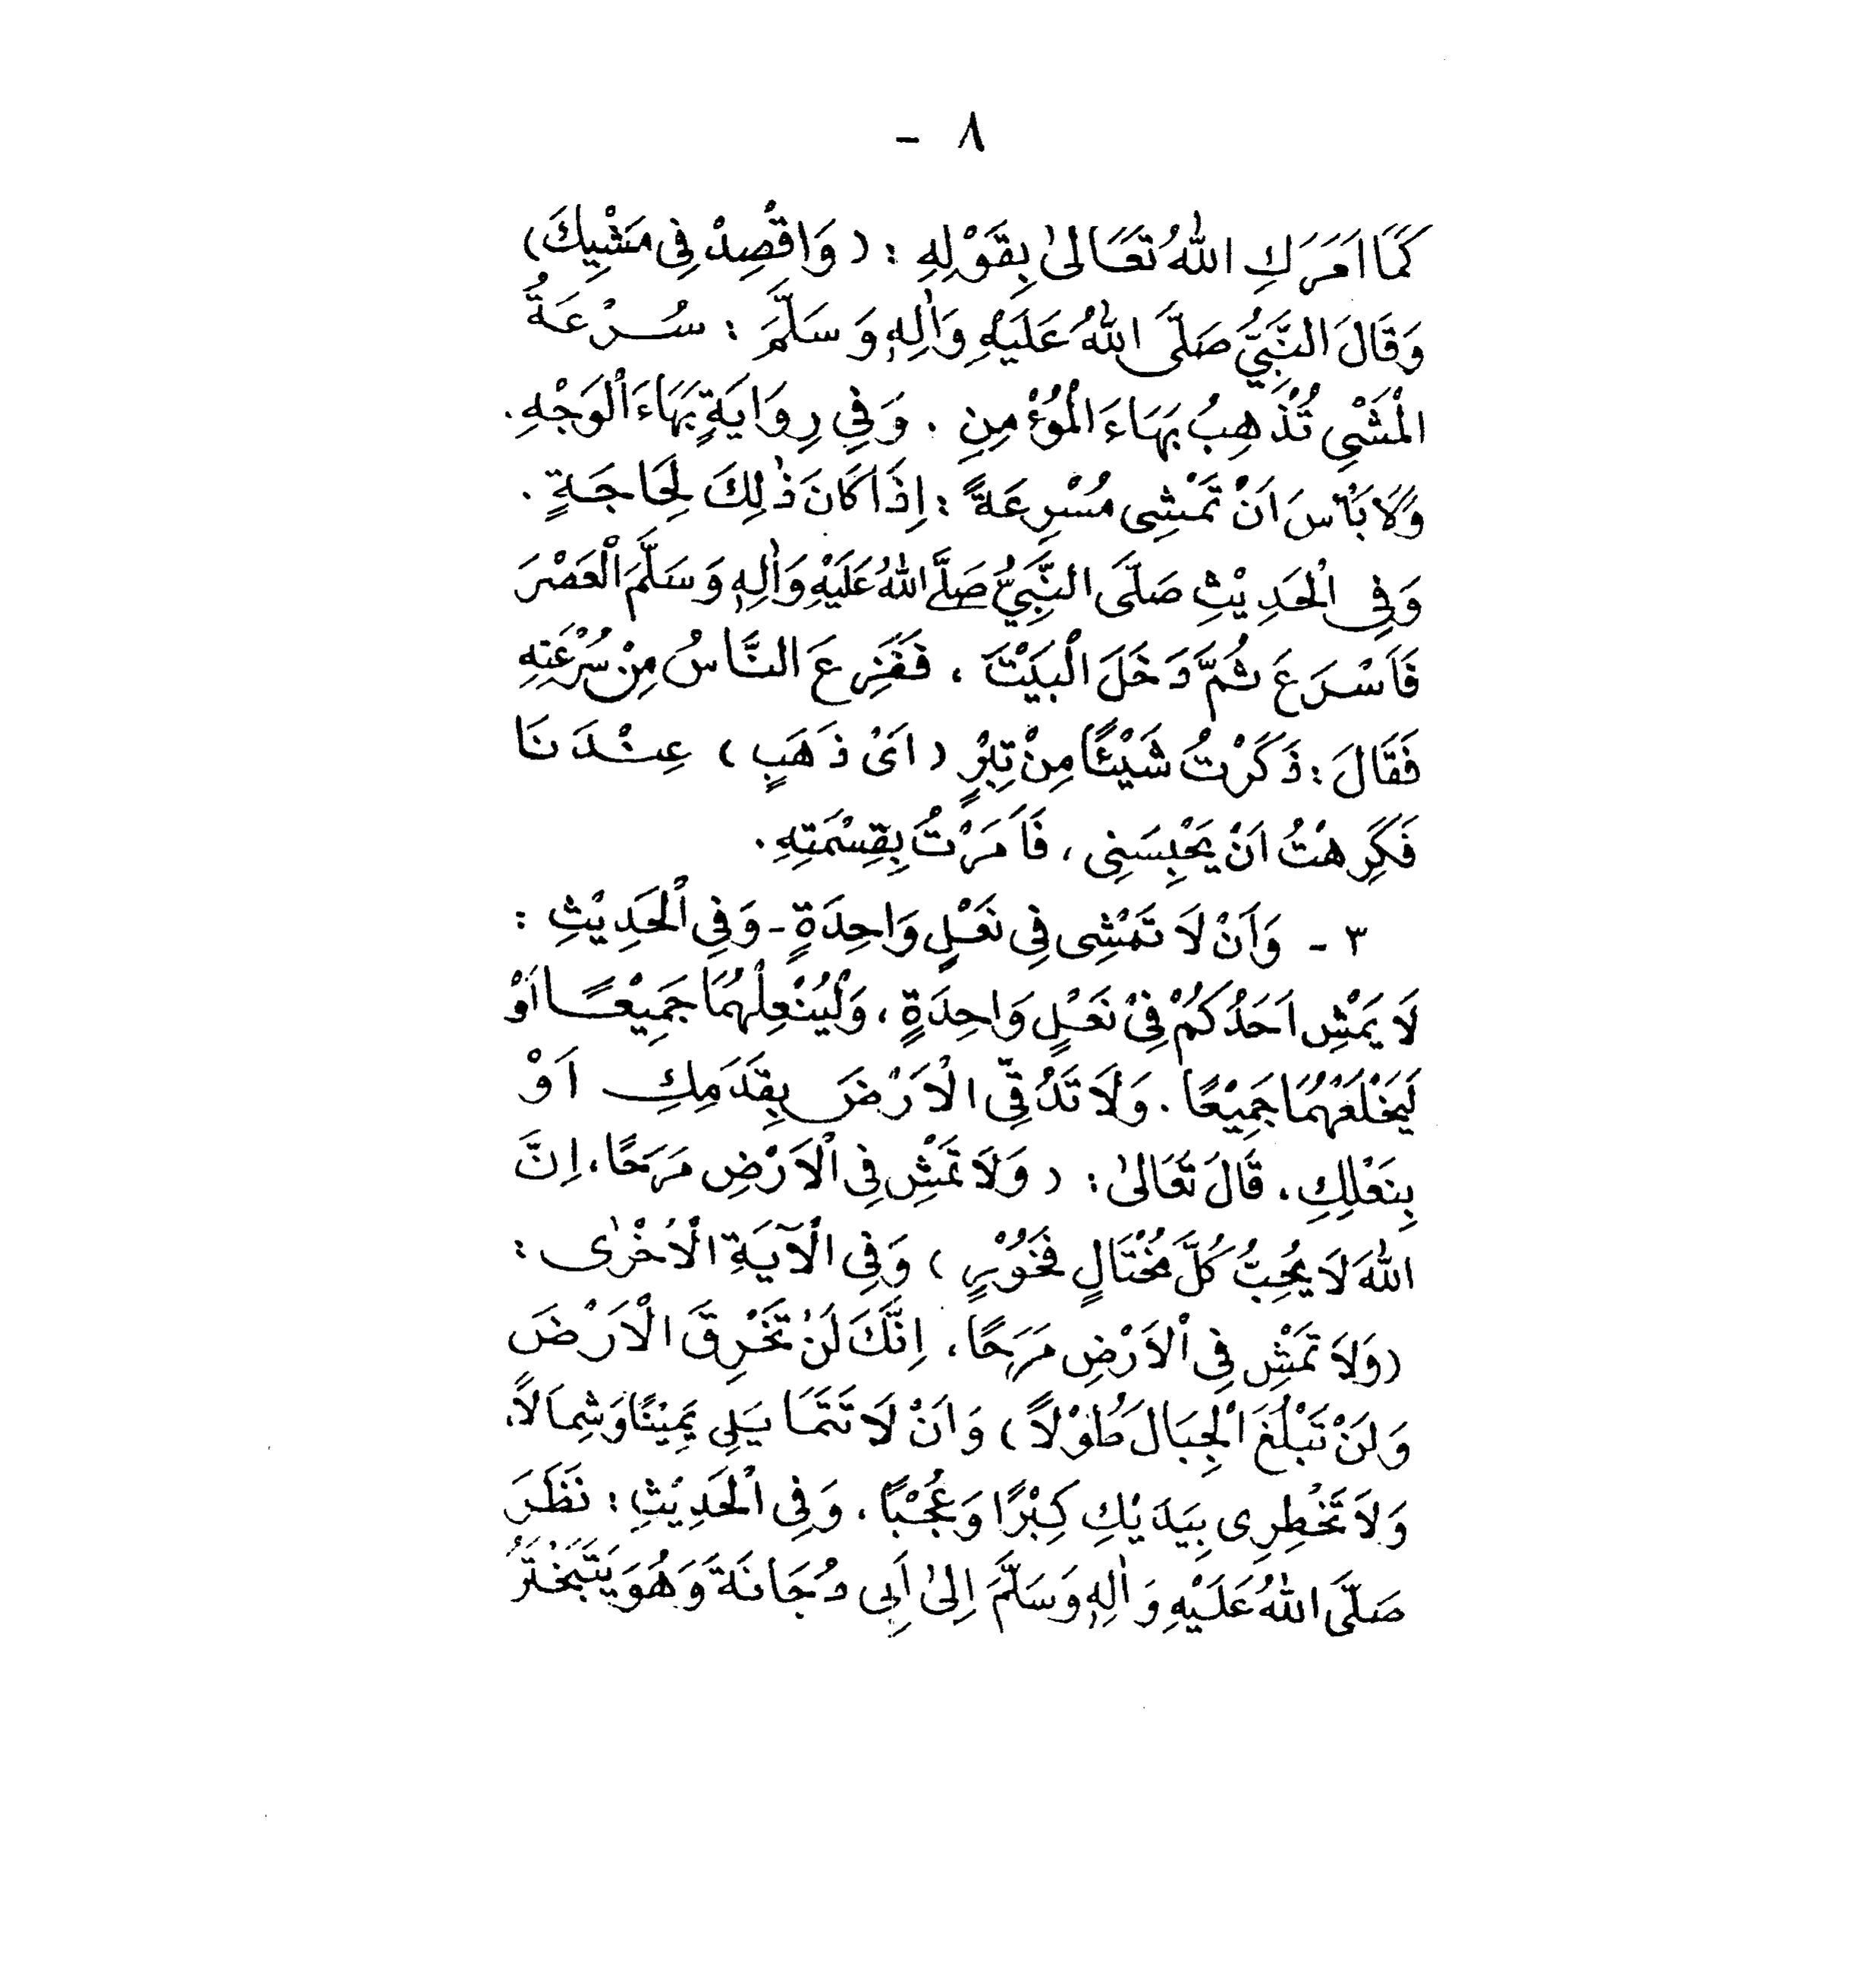 ٨ -
كَمَا اَمَرَكِ اللهُ تَعَالىٰ بِقَوْلِهِ : (وَاقْصِدْ فِى مَشْيِكَ)
وَقَالَ النَّبِيُّ صَلَّى اللهُ عَلَيْهِ وَاٰلِهٖ وَسَلَّمَ : سُرْعَةُ
الْمَشْىِ تُذْهِبُ بَهَاءَ الْمُؤْمِنِ . وَفِى رِوَايَةٍ بَهَاءَ الْوَجْهِ.
وَلَا بَأْسَ اَنْ تَمْشِى مُسْرِعَةً : اِذَا كَانَ ذٰلِكَ لِحَاجَةٍ .
وَفِى الْحَدِيْثِ صَلَّى النَّبِيُّ صَلَّى اللهُ عَلَيْهِ وَاٰلِهٖ وَسَلَّمَ الْعَصْرَ
فَاَسْرَعَ ثُمَّ دَخَلَ الْبَيْتَ ، فَفَزِعَ النَّاسُ مِنْ سُرْعَتِهِ
فَقَالَ : ذَكَرْتُ شَيْئًا مِنْ تِبْرٍ (اَىْ ذَهَبٍ) عِنْدَنَا
فَكَرِهْتُ اَنْ يَحْبِسَنِى ، فَاَمَرْتُ بِقِسْمَتِهِ.
٣ - وَاَنْ لَا تَمْشِى فِى نَعْلٍ وَاحِدَةٍ - وَفِى الْحَدِيْثِ :
لَا يَمْشِ اَحَدُكُمْ فِىْ نَعْلٍ وَاحِدَةٍ ، وَلْيُنْعِلْهُمَا جَمِيْعًا اَوْ
لِيَخْلَعْهُمَا جَمِيْعًا . وَلَا تَدُقِّى الْاَرْضَ بِقَدَمِكِ اَوْ
بِنَعْلِكِ . قَالَ تَعَالىٰ : (وَلَا تَمْشِ فِى الْاَرْضِ مَرَحًا ، اِنَّ
اللهَ لَا يُحِبُّ كُلَّ مُخْتَالٍ فَخُوْرٍ) وَفِى الْآيَةِ الْاُخْرٰى :
(وَلَا تَمْشِ فِى الْاَرْضِ مَرَحًا ، اِنَّكَ لَنْ تَخْرِقَ الْاَرْضَ
وَلَنْ تَبْلُغَ الْجِبَالَ طُوْلًا) وَاَنْ لَا تَتَمَايَلِى يَمِيْنًا وَشِمَالًا.
وَلَا تَخْطِرِى بِيَدَيْكِ كِبْرًا وَعُجْبًا . وَفِى الْحَدِيْثِ : نَظَرَ
صَلَّى اللهُ عَلَيْهِ وَاٰلِهٖ وَسَلَّمَ اِلىٰ أَبِى دُجَانَةَ وَهُوَ يَتَبَخْتَرُ